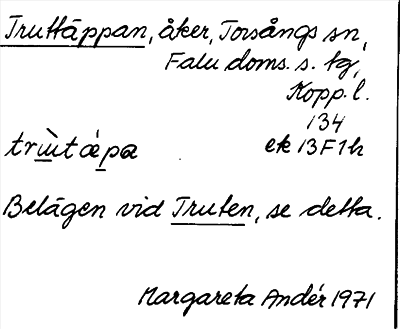 Truttäppan, åker, Torsångs sn,
Falu doms. s. tg,
Kopp. l.
134
trɯ̀tǽpa ek 13F1h
Belägen vid Truten, se detta.
Margareta Andér 1971